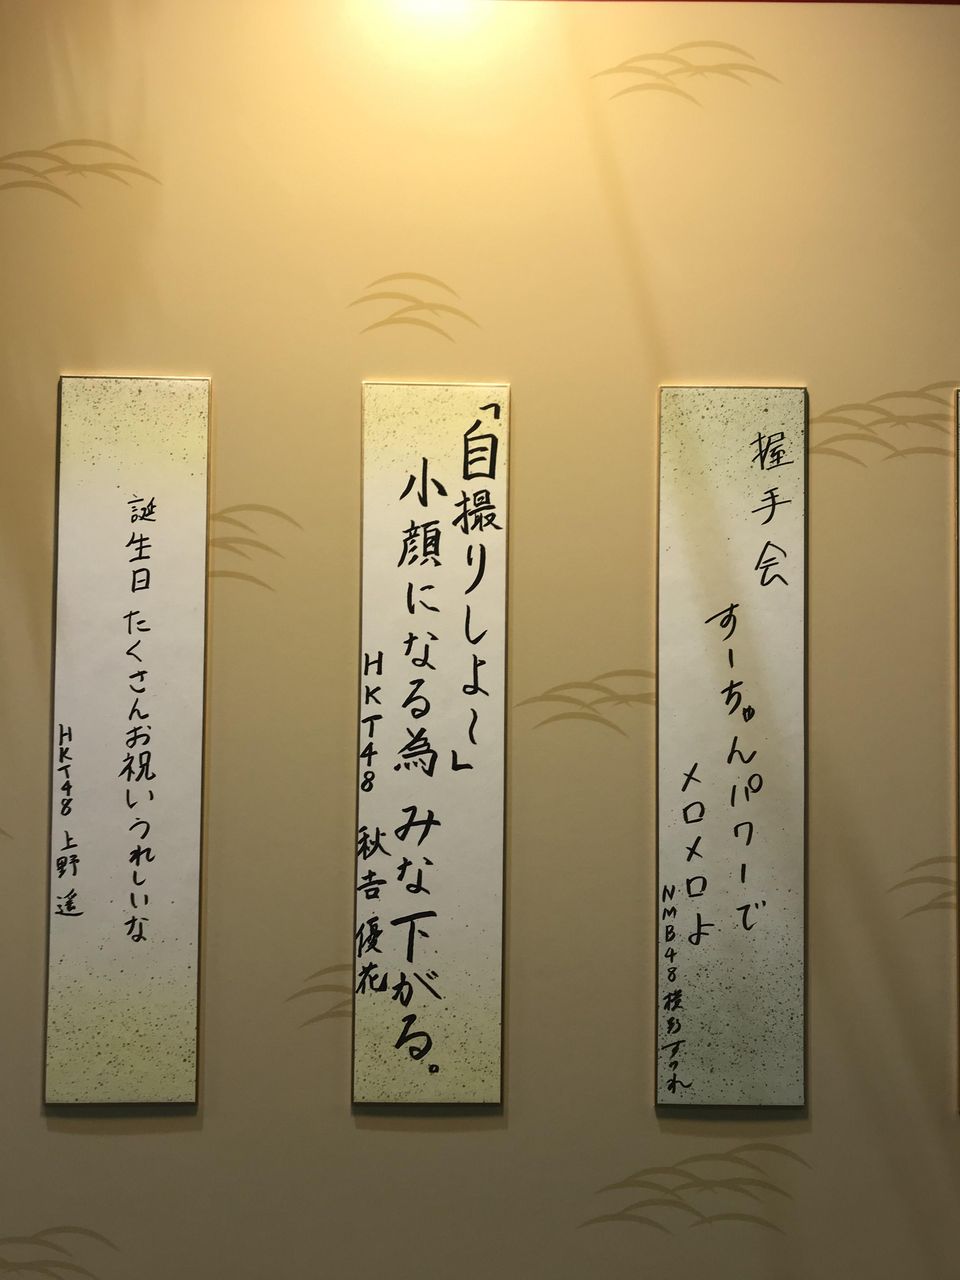 握手会
すーちゅんパワーで
メロメロよ
NMB48 横野すみれ
「自撮りしよ〜」
小顔になる為 みな下がる。
HKT48 秋吉優花
誕生日 たくさんお祝いうれしいな
HKT48 上野 遥